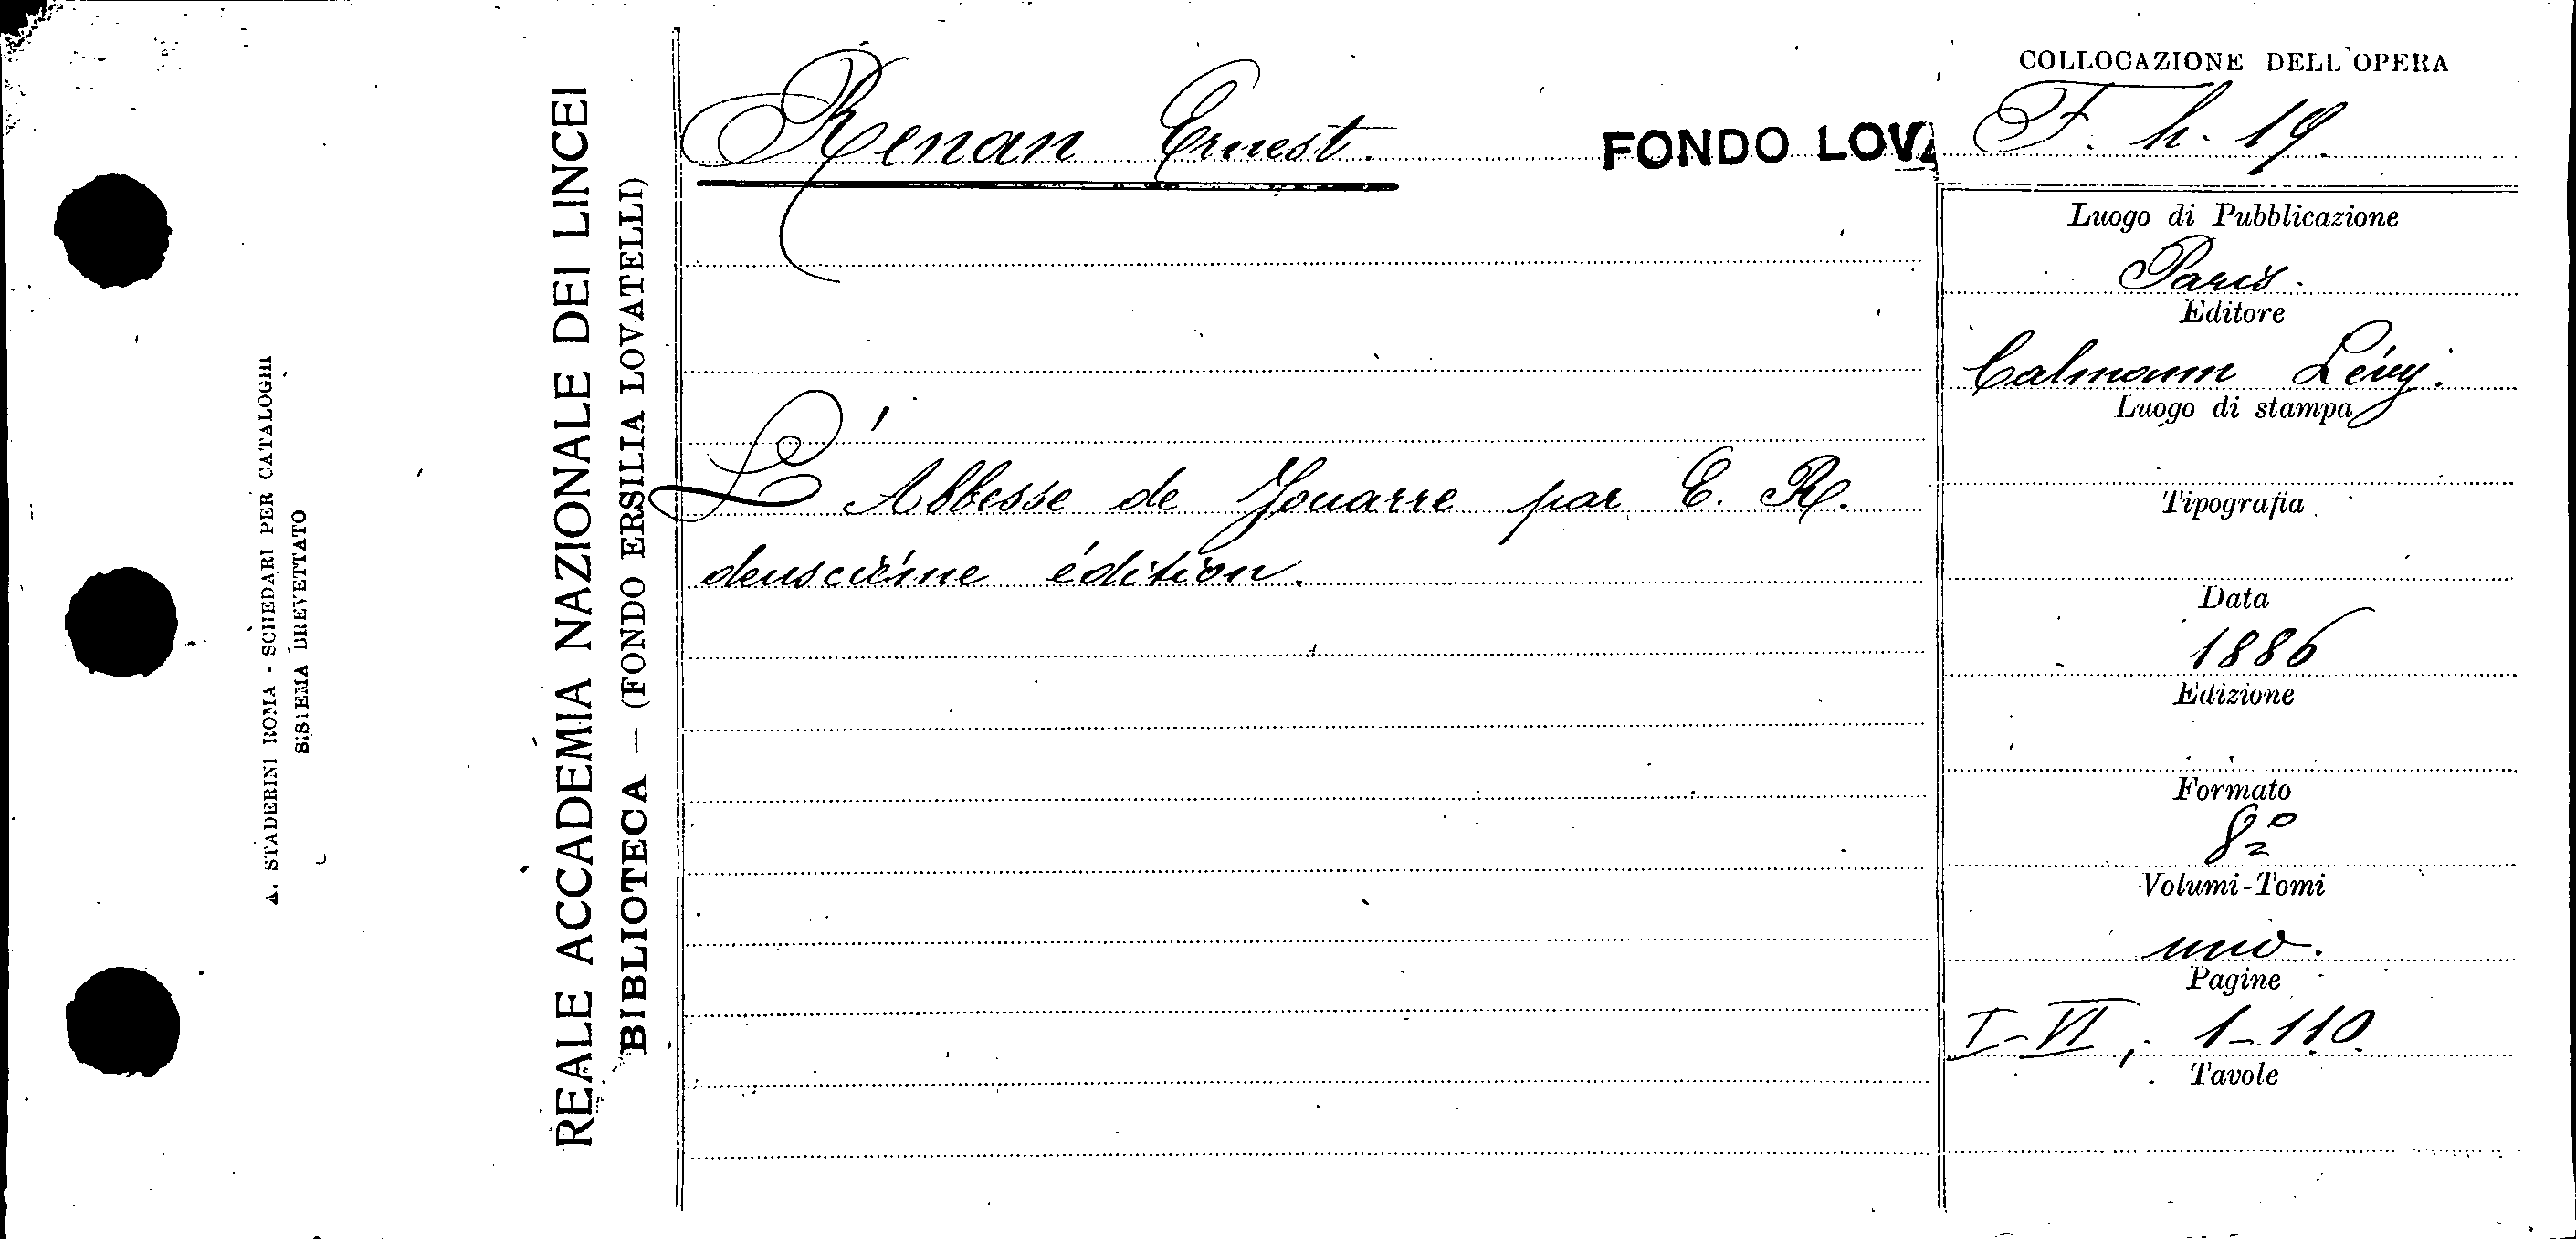 A. STADERINI ROMA - SCHEDARI PER CATALOGHI
SISTEMA BREVETTATO
REALE ACCADEMIA NAZIONALE DEI LINCEI
BIBLIOTECA — (FONDO ERSILIA LOVATELLI)
Renan Ernest.
FONDO LOVA
L'Abbesse de Jouarre par E. R.
deuxcième édition.
COLLOCAZIONE DELL'OPERA
F. h. 19.
Luogo di Pubblicazione
Paris.
Editore
Calmann Lévy.
Luogo di stampa
Tipografia
Data
1886
Edizione
Formato
8º
Volumi-Tomi
uno.
Pagine
I-VI, 1-110.
Tavole